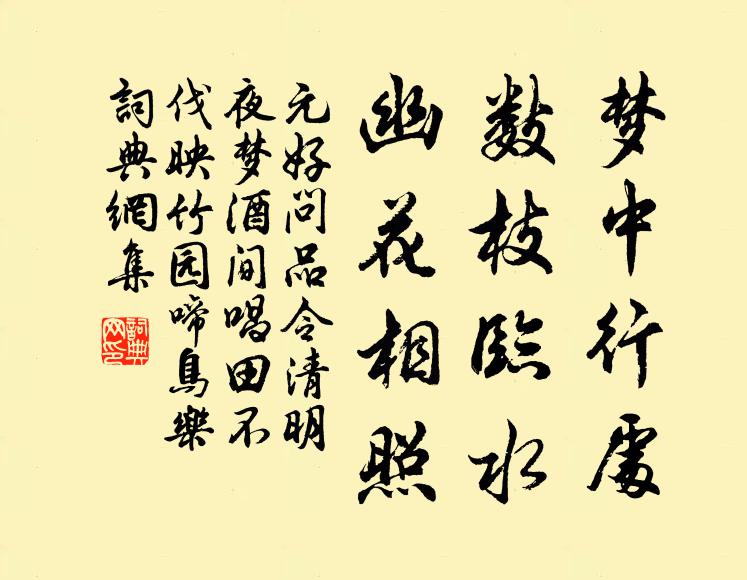 梦中行处
数枝临水
幽花相照
元好问品令清明
夜梦酒间唱田不
伐映竹园啼鸟乐
词典網集
詞典网印